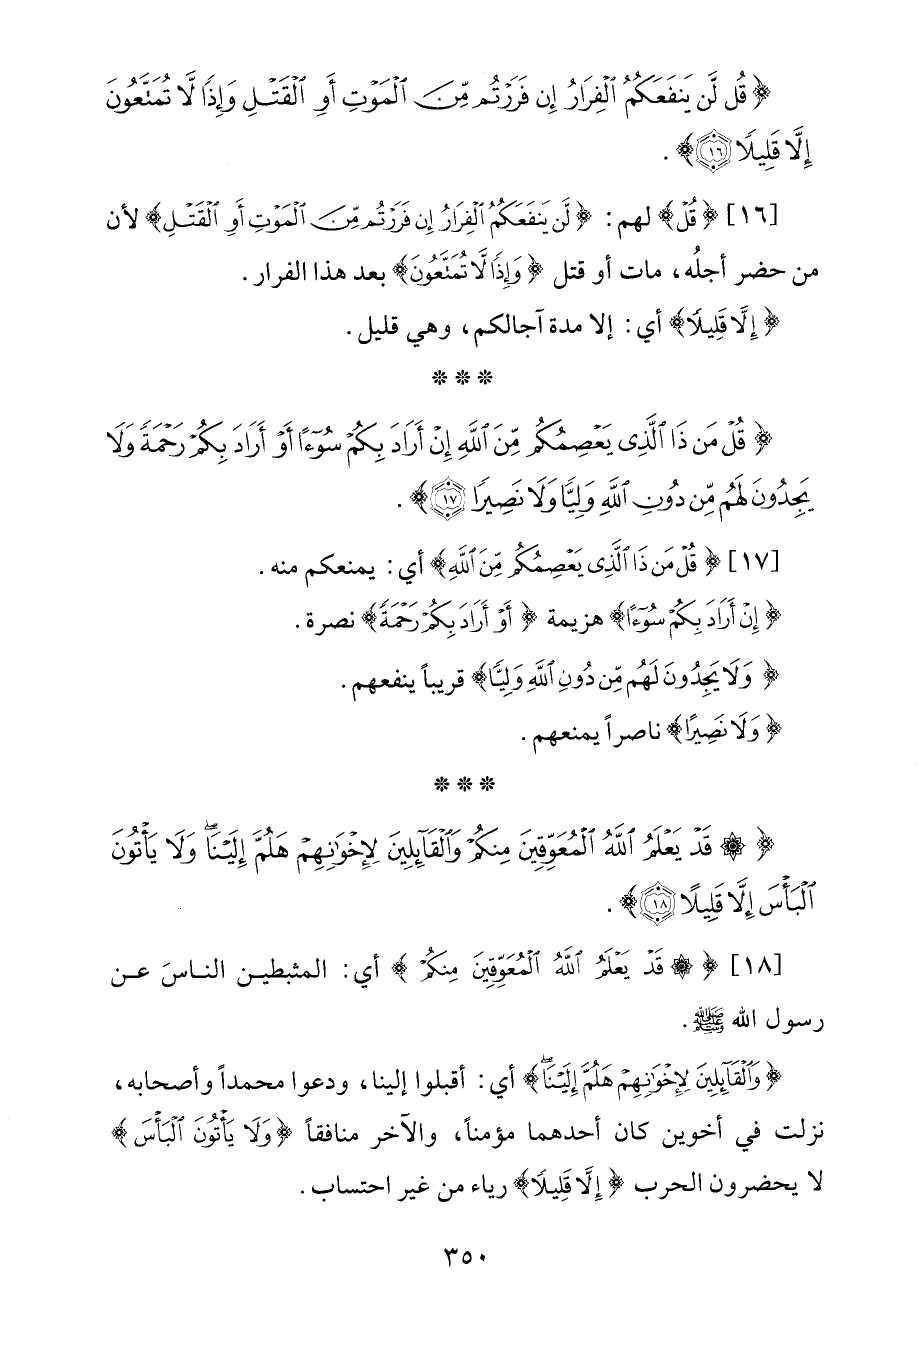 ﴿ قُل لَّن يَنفَعَكُمُ ٱلْفِرَارُ إِن فَرَرْتُم مِّنَ ٱلْمَوْتِ أَوِ ٱلْقَتْلِ وَإِذًا لَّا تُمَتَّعُونَ
إِلَّا قَلِيلًا ١٦﴾ .
[١٦] ﴿قُل﴾ لهم: ﴿لَّن يَنفَعَكُمُ ٱلْفِرَارُ إِن فَرَرْتُم مِّنَ ٱلْمَوْتِ أَوِ ٱلْقَتْلِ﴾ لأن
من حضر أجلُه، مات أو قتل ﴿وَإِذًا لَّا تُمَتَّعُونَ﴾ بعد هذا الفرار.
﴿إِلَّا قَلِيلًا﴾ أي: إلا مدة آجالكم، وهي قليل.
* * *
﴿ قُلْ مَن ذَا ٱلَّذِى يَعْصِمُكُم مِّنَ ٱللَّهِ إِنْ أَرَادَ بِكُمْ سُوٓءًا أَوْ أَرَادَ بِكُمْ رَحْمَةً وَلَا
يَجِدُونَ لَهُم مِّن دُونِ ٱللَّهِ وَلِيًّا وَلَا نَصِيرًا ١٧﴾ .
[١٧] ﴿قُلْ مَن ذَا ٱلَّذِى يَعْصِمُكُم مِّنَ ٱللَّهِ﴾ أي: يمنعكم منه.
﴿إِنْ أَرَادَ بِكُمْ سُوٓءًا﴾ هزيمة ﴿أَوْ أَرَادَ بِكُمْ رَحْمَةً﴾ نصرة.
﴿وَلَا يَجِدُونَ لَهُم مِّن دُونِ ٱللَّهِ وَلِيًّا﴾ قريباً ينفعهم.
﴿وَلَا نَصِيرًا﴾ ناصراً يمنعهم.
* * *
﴿ ۞ قَدْ يَعْلَمُ ٱللَّهُ ٱلْمُعَوِّقِينَ مِنكُمْ وَٱلْقَآئِلِينَ لِإِخْوَٰنِهِمْ هَلُمَّ إِلَيْنَا ۖ وَلَا يَأْتُونَ
ٱلْبَأْسَ إِلَّا قَلِيلًا ١٨﴾ .
[١٨] ﴿ ۞ قَدْ يَعْلَمُ ٱللَّهُ ٱلْمُعَوِّقِينَ مِنكُمْ ﴾ أي: المثبطين الناسَ عن
رسول الله ﷺ.
﴿وَٱلْقَآئِلِينَ لِإِخْوَٰنِهِمْ هَلُمَّ إِلَيْنَا ۖ﴾ أي: أقبلوا إلينا، ودعوا محمداً وأصحابه،
نزلت في أخوين كان أحدهما مؤمناً، والآخر منافقاً ﴿وَلَا يَأْتُونَ ٱلْبَأْسَ﴾
لا يحضرون الحرب ﴿إِلَّا قَلِيلًا﴾ رياء من غير احتساب.
٣٥٠